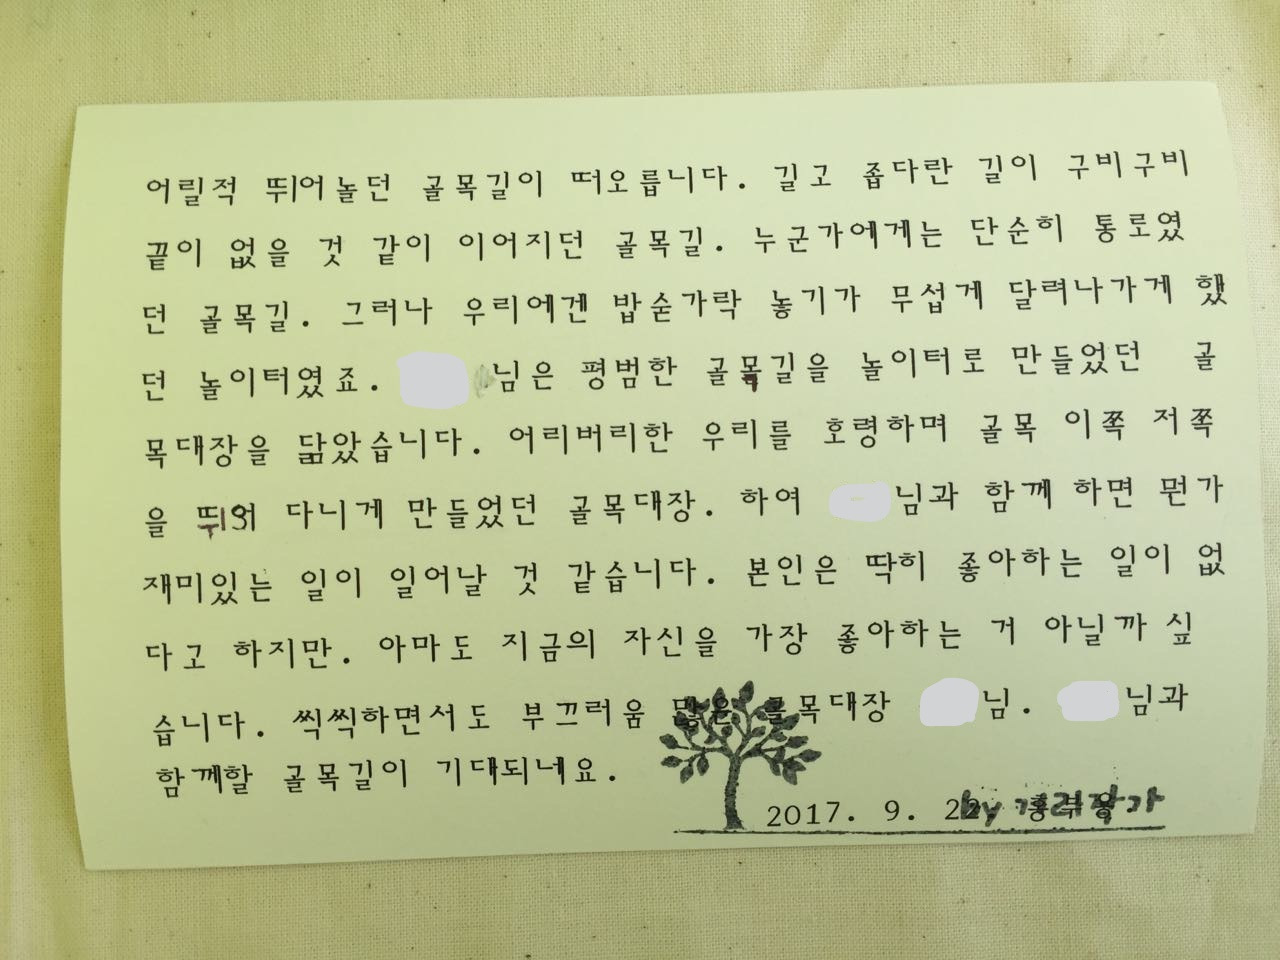 어릴적 뛰어놀던 골목길이 떠오릅니다. 길고 좁다란 길이 구비구비
끝이 없을 것 같이 이어지던 골목길. 누군가에게는 단순히 통로였
던 골목길. 그러나 우리에겐 밥숟가락 놓기가 무섭게 달려나가게 했
던 놀이터였죠. 님은 평범한 골목길을 놀이터로 만들었던 골
목대장을 닮았습니다. 어리버리한 우리를 호령하며 골목 이쪽 저쪽
을 뛰어 다니게 만들었던 골목대장. 하여 님과 함께 하면 뭔가
재미있는 일이 일어날 것 같습니다. 본인은 딱히 좋아하는 일이 없
다고 하지만. 아마도 지금의 자신을 가장 좋아하는 거 아닐까 싶
습니다. 씩씩하면서도 부끄러움 많은 골목대장 님. 님과
함께할 골목길이 기대되네요.
2017. 9. 22. by 거리작가